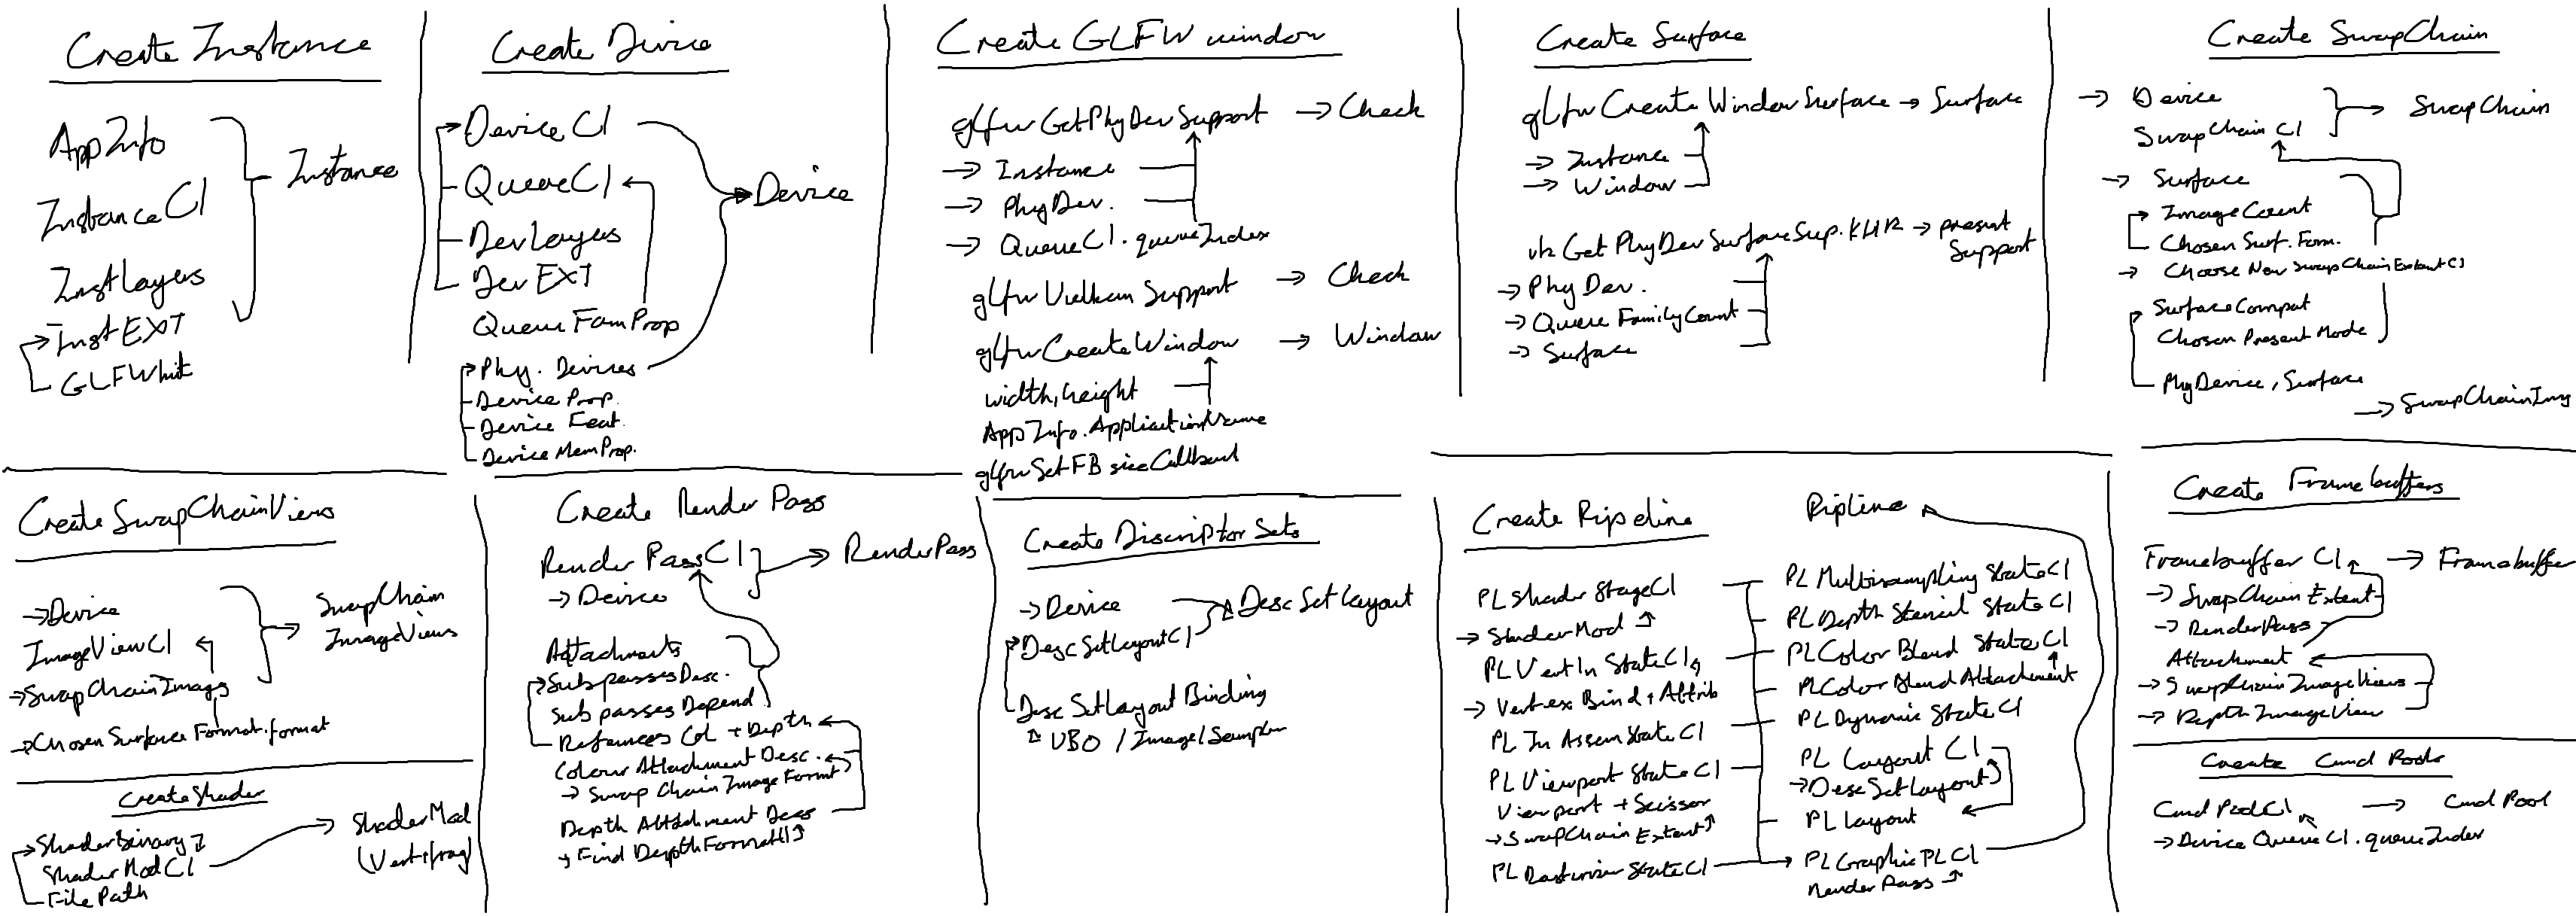 Create Instance
AppInfo
InstanceCI
InstLayers
InstEXT
GLFWInit
Instance
Create Device
DeviceCI
QueueCI
DevLayers
DevEXT
QueueFamProp
Phy. Devices
Device Prop.
Device Feat.
Device MemProp.
Device
Create GLFW window
glfwGetPhyDevSupport → Check
→ Instance
→ PhyDev.
→ QueueCI.queueIndex
glfwVulkan Support → Check
glfwCreateWindow → Window
width, height
AppInfo.ApplicationName
glfwSetFB sizeCallback
Create Surface
glfwCreateWindowSurface → Surface
→ Instance
→ Window
vkGetPhyDevSurfaceSup.KHR → present Support
→ PhyDev.
→ Queue FamilyCount
→ Surface
Create SwapChain
→ Device
SwapChain CI
→ SwapChain
→ Surface
ImageCount
Chosen Surf. Form.
→ Choose New SwapChainExtentCI
SurfaceCompat
Chosen Present Mode
PhyDevice, Surface
→ SwapChainImg
Create SwapChainViews
→ Device
ImageViewCI
→ SwapChainImages
→ Chosen Surface Format.format
→ SwapChain
ImageViews
Create Shader
→ ShaderBinary
ShaderModCI
FilePath
ShaderMod
(Vert+frag)
Create Render Pass
Render PassCI
→ Device
→ RenderPass
Attachments
Subpasses Desc.
Sub passes Depend
References Col + Depth
Colour Attachment Desc.
→ Swap Chain Image Format
Depth Attachment Desc
→ Find DepthFormat()
Create Discriptor Sets
→ Device
DescSetLayoutCI
Desc Set Layout
Desc SetLayout Binding
UBO / Image / Sampler
Create Pipeline
PL Shader StageCI
→ ShaderMod
PL VertIn StateCI
→ Vertex Bind + Attrib
PL In Assem StateCI
PL Viewport StateCI
Viewport + Scissor
→ SwapChain Extent
PL Rasterizer StateCI
Pipline
PL Multisampling StateCI
PL Depth Stencil StateCI
PL Color Blend StateCI
PL Color Blend Attachment
PL Dynamic StateCI
PL Layout CI
→ DescSetLayout
PL layout
PL GraphicPLCI
Render Pass
Create Framebuffers
Framebuffer CI → Framebuffer
→ SwapChain Extent
→ RenderPass
Attachment
→ SwapChainImageViews
→ DepthImageView
Create Cmd Pools
Cmd PoolCI → Cmd Pool
→ Device QueueCI.queueIndex